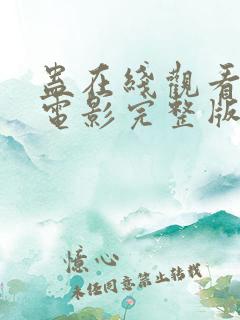 蛊在綫觀看
電影完整版
憶心
未经同意禁止转载